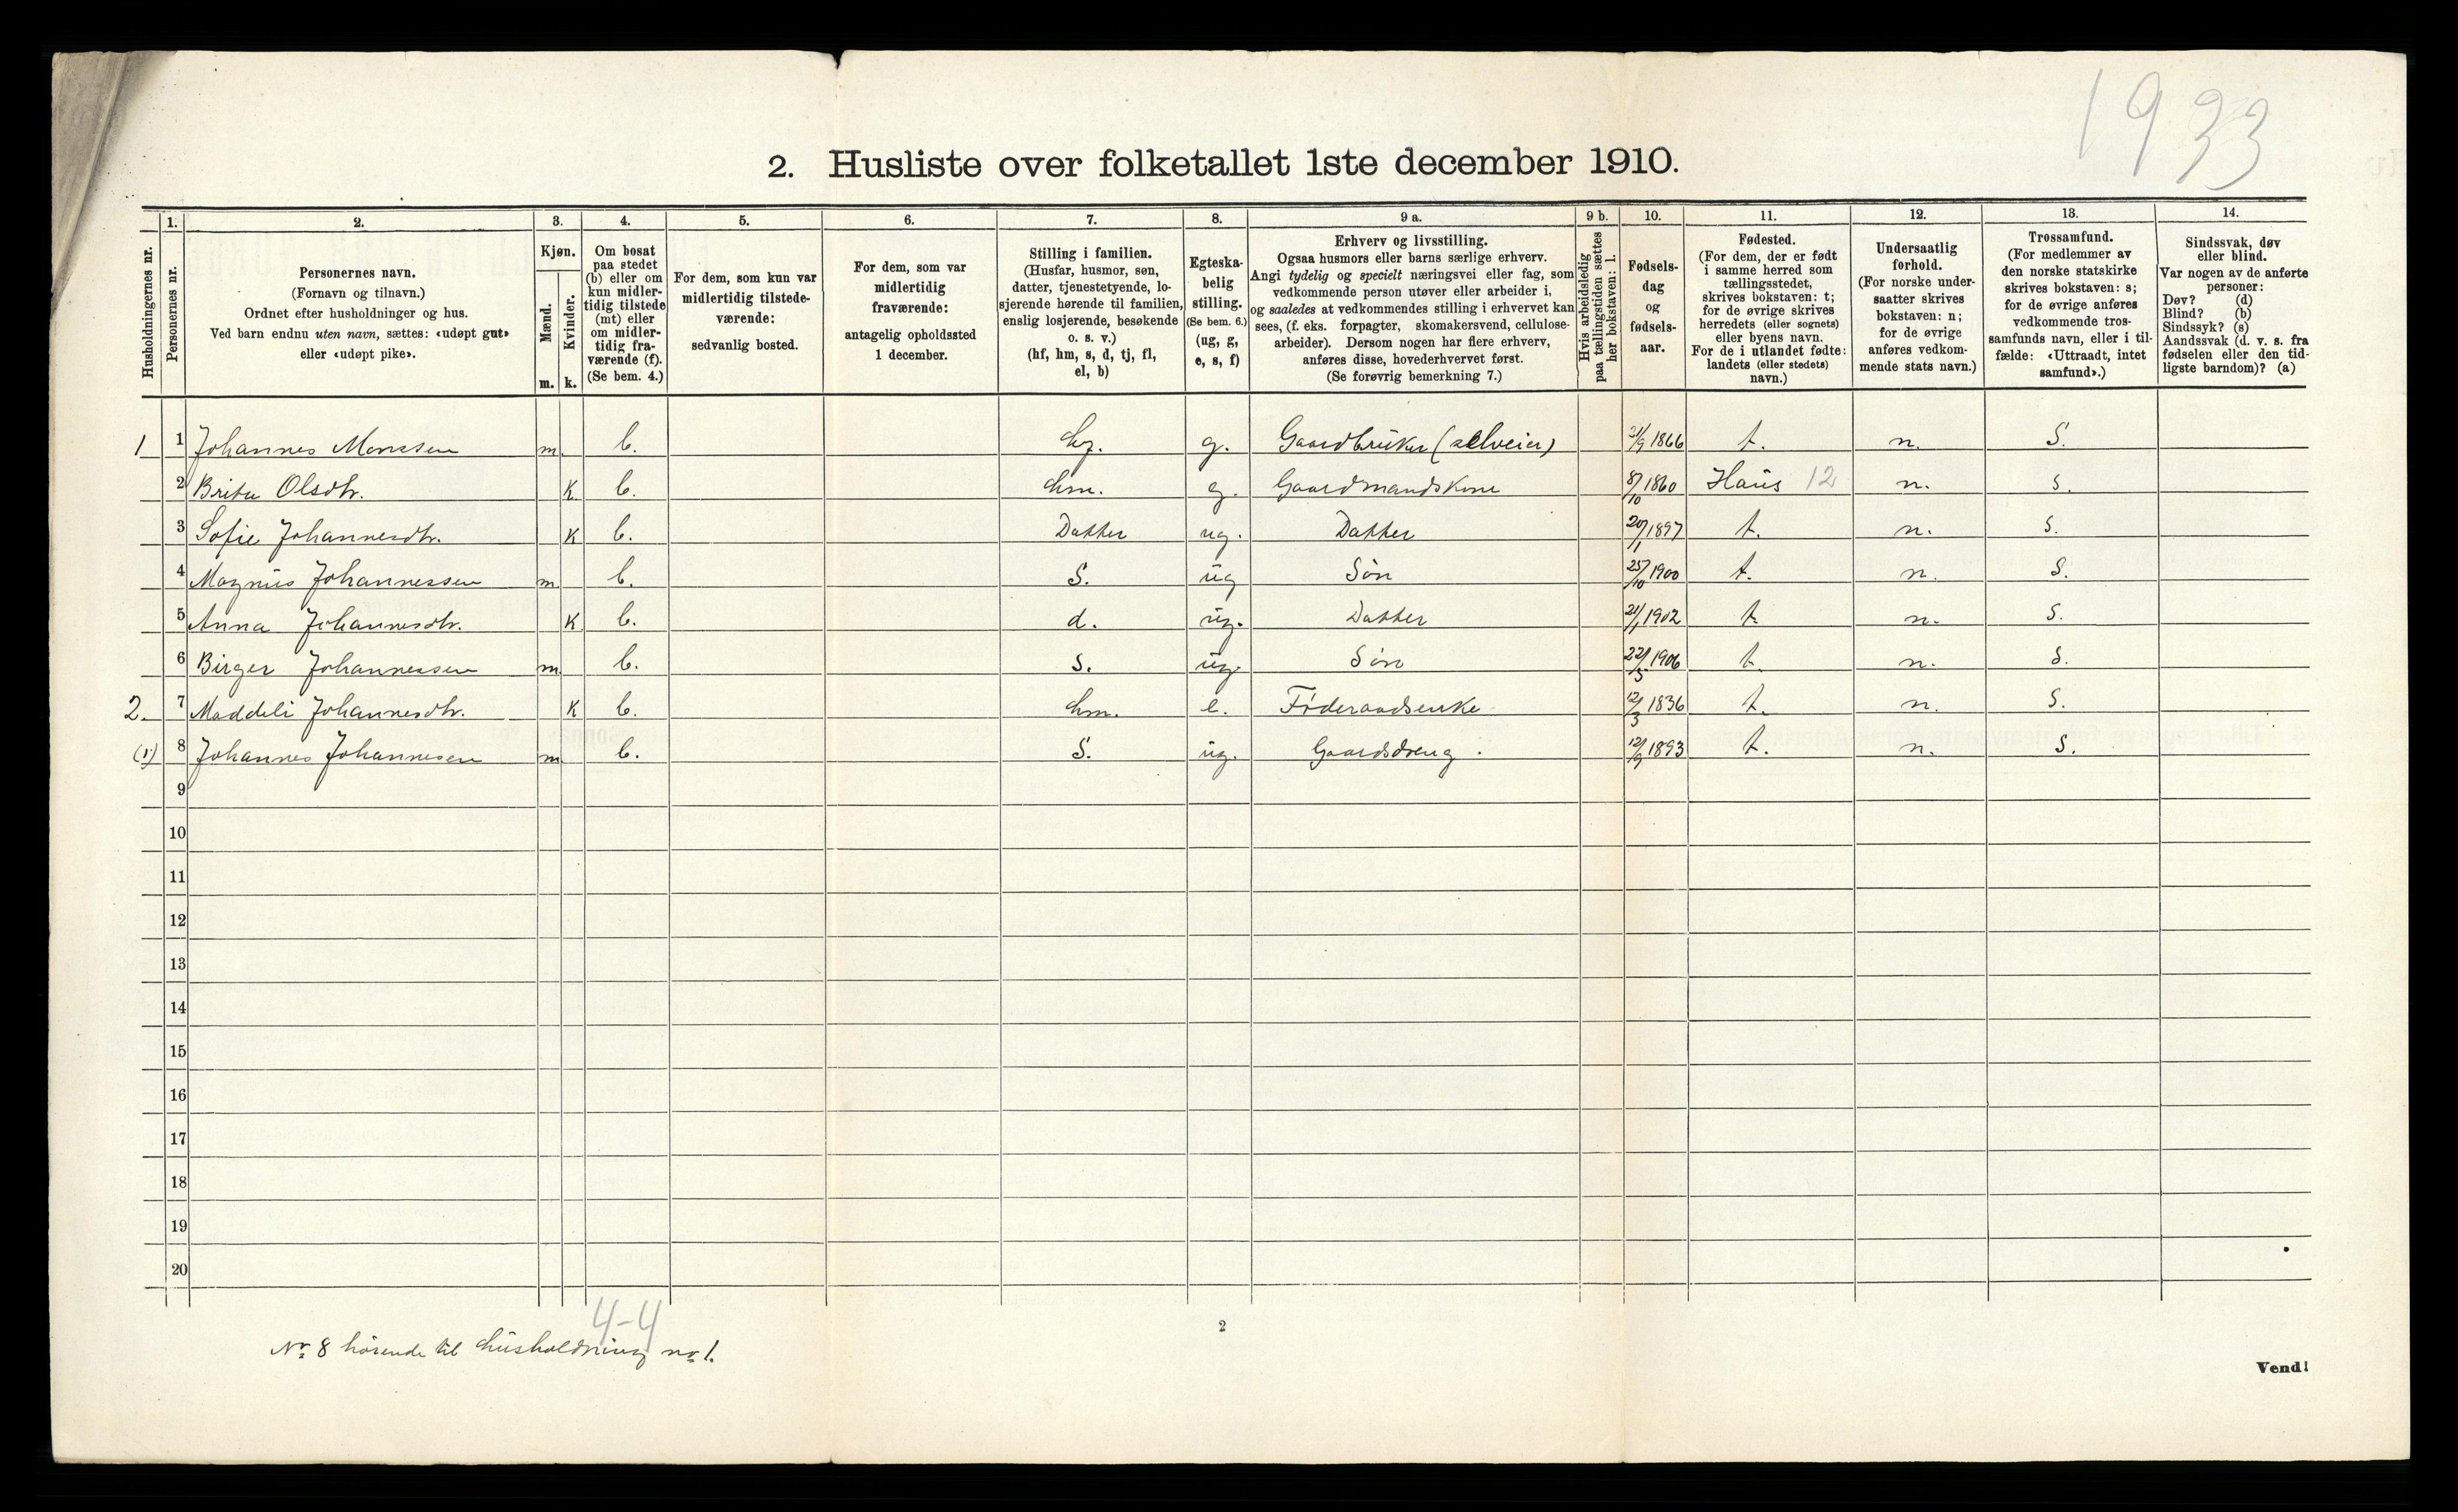 1933
2. Husliste over folketallet 1ste december 1910.
Husholdningernes nr.
1. Personernes nr.
2. Personernes navn.
(Fornavn og tilnavn.)
Ordnet efter husholdninger og hus.
Ved barn endnu uten navn, sættes: «udøpt gut»
eller «udøpt pike».
3. Kjøn.
Mænd. m.
Kvinder. k.
4. Om bosat
paa stedet
(b) eller om
kun midler-
tidig tilstede
(mt) eller
om midler-
tidig fra-
værende (f).
(Se bem. 4.)
5. For dem, som kun var
midlertidig tilstede-
værende:
sedvanlig bosted.
6. For dem, som var
midlertidig
fraværende:
antagelig opholdssted
1 december.
7. Stilling i familien.
(Husfar, husmor, søn,
datter, tjenestetyende, lo-
sjerende hørende til familien,
enslig losjerende, besøkende
o. s. v.)
(hf, hm, s, d, tj, fl,
el, b)
8. Egteska-
belig
stilling.
(Se bem. 6.)
(ug, g,
e, s, f)
9 a. Erhverv og livsstilling.
Ogsaa husmors eller barns særlige erhverv.
Angi tydelig og specielt næringsvei eller fag, som
vedkommende person utøver eller arbeider i,
og saaledes at vedkommendes stilling i erhvervet kan
sees, (f. eks. forpagter, skomakersvend, cellulose-
arbeider). Dersom nogen har flere erhverv,
anføres disse, hovederhvervet først.
(Se forøvrig bemerkning 7.)
9 b. Hvis arbeidsledig
paa tællingstiden sættes
her bokstaven: l.
10. Fødsels-
dag
og
fødsels-
aar.
11. Fødested.
(For dem, der er født
i samme herred som
tællingsstedet,
skrives bokstaven: t;
for de øvrige skrives
herredets (eller sognets)
eller byens navn.
For de i utlandet fødte:
landets (eller stedets)
navn.)
12. Undersaatlig
forhold.
(For norske under-
saatter skrives
bokstaven: n;
for de øvrige
anføres vedkom-
mende stats navn.)
13. Trossamfund.
(For medlemmer av
den norske statskirke
skrives bokstaven: s;
for de øvrige anføres
vedkommende tros-
samfunds navn, eller i til-
fælde: «Uttraadt, intet
samfund».)
14. Sindssvak, døv
eller blind.
Var nogen av de anførte
personer:
Døv? (d)
Blind? (b)
Sindssyk? (s)
Aandssvak (d. v. s. fra
fødselen eller den tid-
ligste barndom)? (a)
1 1 Johannes Monssen m. b. hf. g. Gaardbruker (selveier) 21/9 1866 t. n. S.
2 Brita Olsdtr. K. b. hm. g. Gaardmandskone 8/10 1860 Haus 12 n. s.
3 Sofie Johannesdtr. K b. Datter ug. Datter 20/1 1897 t. n. S.
4 Magnus Johannessen m. b. S. ug Søn 25/10 1900 t. n. S.
5 Anna Johannesdtr. K b. d. ug. Datter 21/1 1902 t. n. S.
6 Birger Johannessen m. b. S. ug. Søn 22/5 1906 t. n. S.
2. 7 Maddeli Johannesdtr. K b. hm. e. Føderaadsenke 12/3 1836 t. n. S.
(1) 8 Johannes Johannesen m b. S. ug. Gaardsdreng. 12/9 1893 t. n. S.
9
10
11
12
13
14
15
16
17
18
19
20
4-4
No 8 hörende til husholdning no 1.
2
Vend!